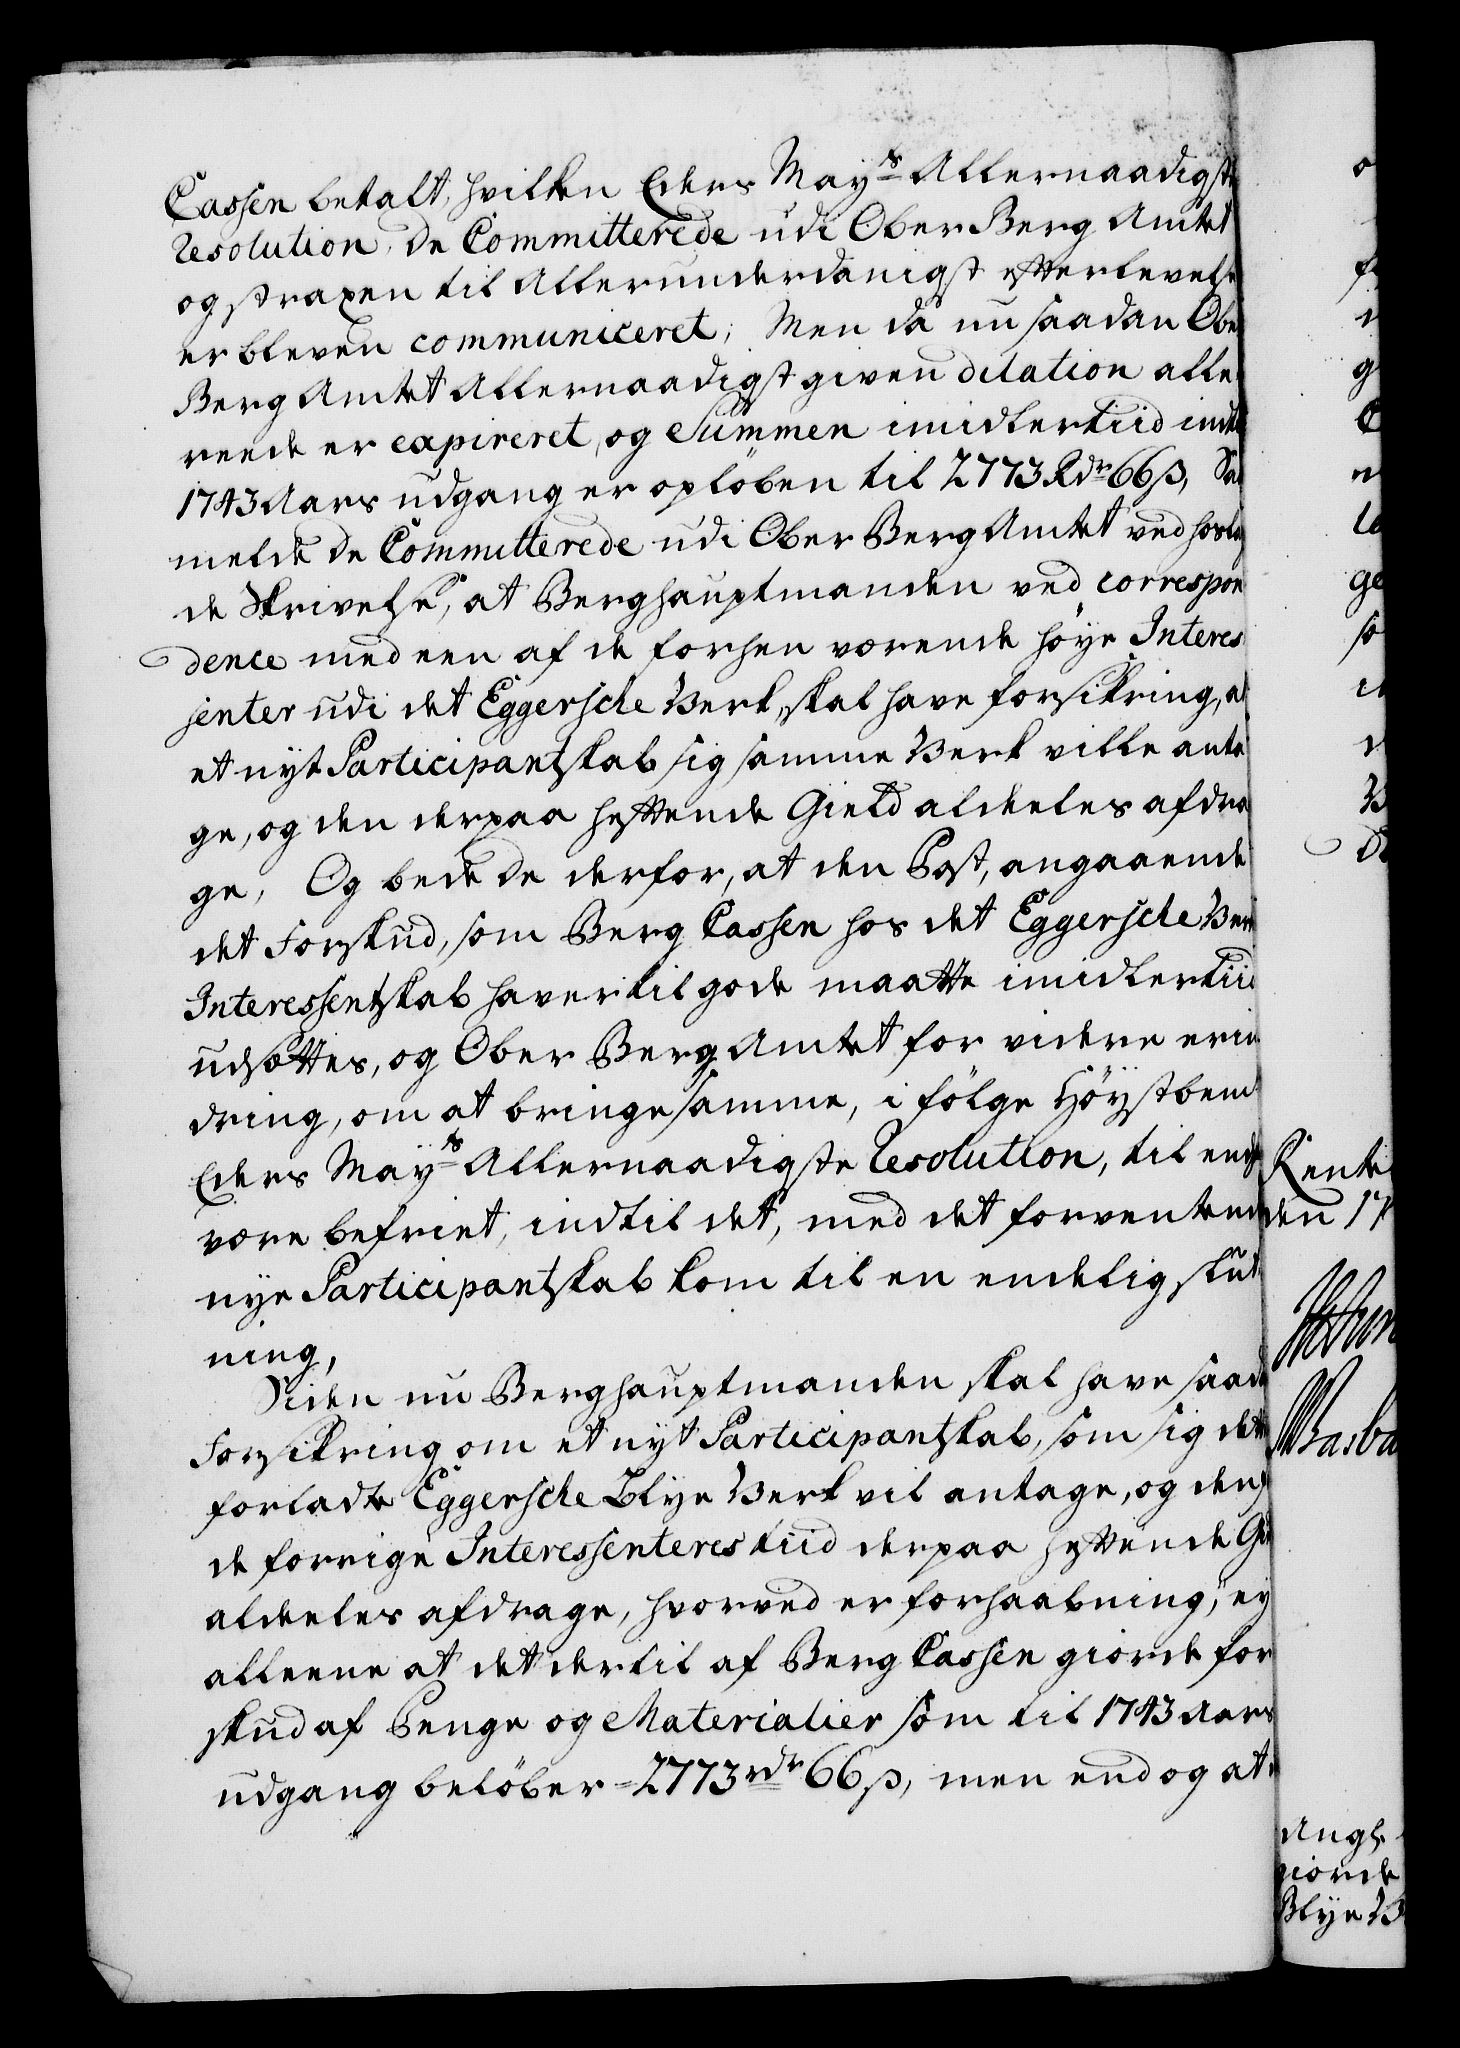 Cassen betalt, hvilken Eders May.ts Allernaadigste
Resolution, de Committerede udi Ober Berg Amtet
og straxen til Allerunderdanigst efterlevelse
er bleven communiceret; Men da nu saadan Obe
Berg Amtet Allernaadigst given dilation alle
reede er expireret, og Summen imidlertiid indtil
1743 Aars udgang er opløben til 2773 Rdr 66 ß, Saa
melde de Committerede udi Ober Berg Amtet ved hoslag
de Skrivelse, at Berghauptmanden ved correspon
dence med een af de forhen værende høye Interes
senter udi det Eggersche Verk, skal have forsikring, at
et nyt Participantskab sig samme Verk ville anta
ge, og den derpaa heftende Gield aldeeles afdra
ge, Og bede de derfor, at den Post, angaaende
det Forskud, som Berg Cassen hos det Eggersche Verk
Interessentskab haver til gode maatte imidlertiid
udsættes, og Ober Berg Amtet for videre erin
dring, om at bringe samme, i følge Høystbem.
Eders May.ts Allernaadigste Resolution, til ende
være befriet, indtil det, med det forventende
nye Participantskab kom til en endelig slut
ning,
Siden nu Berghauptmanden skal have saad
Forsikring om et nyt Participantskab, som sig dette
forladte Eggersche Blye Verk vil antage, og den
de forrige Interessenteres tiid derpaa heftende Gi
aldeeles afdrage, hvorved er forhaabning, ey
alleene at det dertil af Berg Cassen giorde for
skud af Penge og Materialier som til 1743 Aars
udgang beløber = 2773 rdr 66 ß, men endog at
Rente
den 17
Angl.
giorde
Blye V